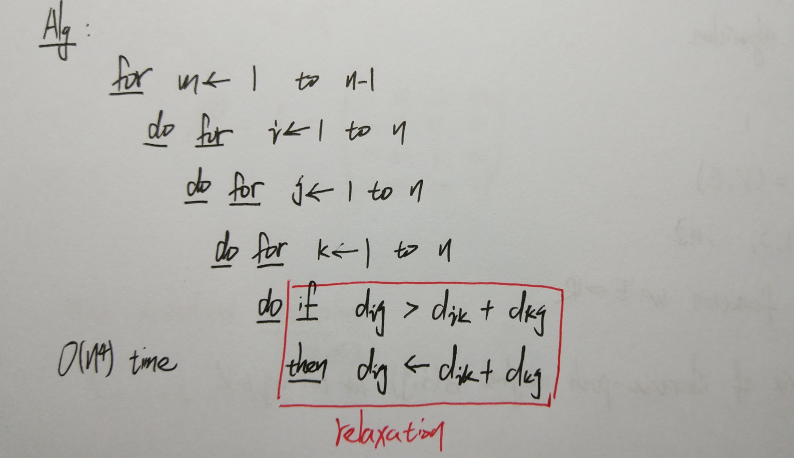 Alg:
for m ← 1 to n-1
do for i ← 1 to n
do for j ← 1 to n
do for k ← 1 to n
do if dij > dik + dkj
O(n⁴) time then dij ← dik + dkj
relaxation